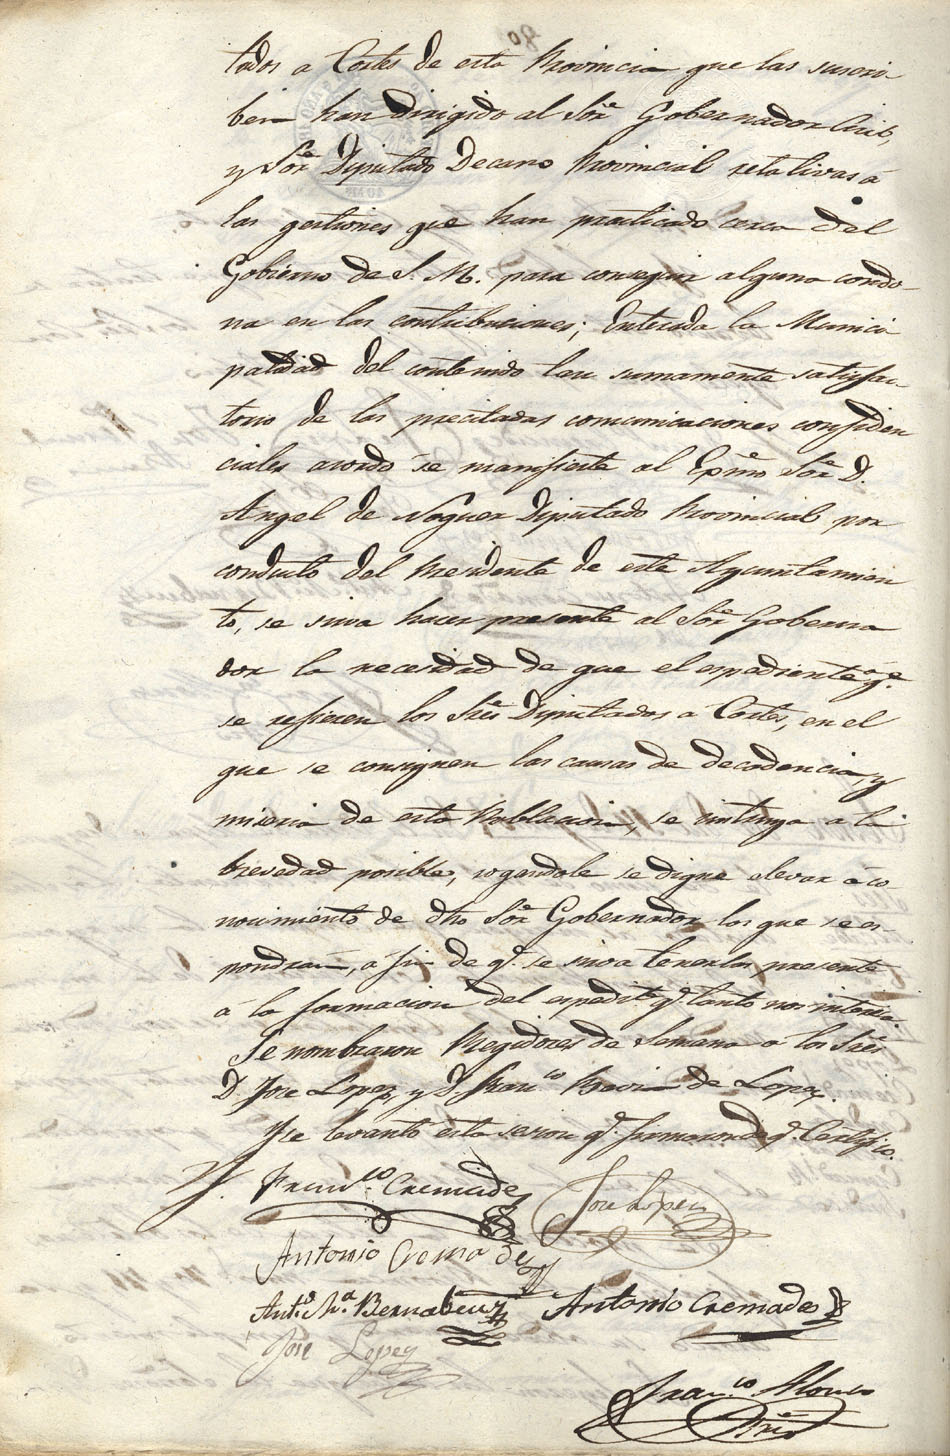 tados a Cortes de esta Provincia que las suscri
ben han dirigido al Sor. Gobernador Civil,
y Sor. Diputado Decano Provincial relativas á
las gestiones que han practicado cerca del
Gobierno de S. M. para conseguir alguna condo-
na en las contribuciones; Enterada la Munici
palidad del contenido tan sumamente satisfac-
torio de las precitadas comunicaciones confiden
ciales acordó se manifieste al Exmo. Sor. D.
Angel de Noguer Diputado Provincial por
conducto del Presidente de este Ayuntamien
to, se sirva hacer presente al Sor. Goberna
dor la necesidad de que el espediente á qe.
se refieren los Sres. Diputados a Cortes, en el
que se consignen las causas de decadencia, y
miseria de esta Poblacion, se instruya a la
brevedad posible, rogandole se digne elevar á co
nocimiento de dho Sor. Gobernador los que se es-
pondran, a fin de q. se sirva tenerlos presente
á la formacion del espedte. q. tanto nos interesa.
Se nombraron Regidores de Semana a los Sres.
D. Jose Lopez, y D. Franco. de Lopez.
Y se levantó esta sesion q. firmaron de q. Certifico.
Franco. Cremades
Jose Lopez
Antonio Cremades
Anto. Ma. Bernabeu
Antonio Cremades
José Lopez
Franco. Alonso
Srio